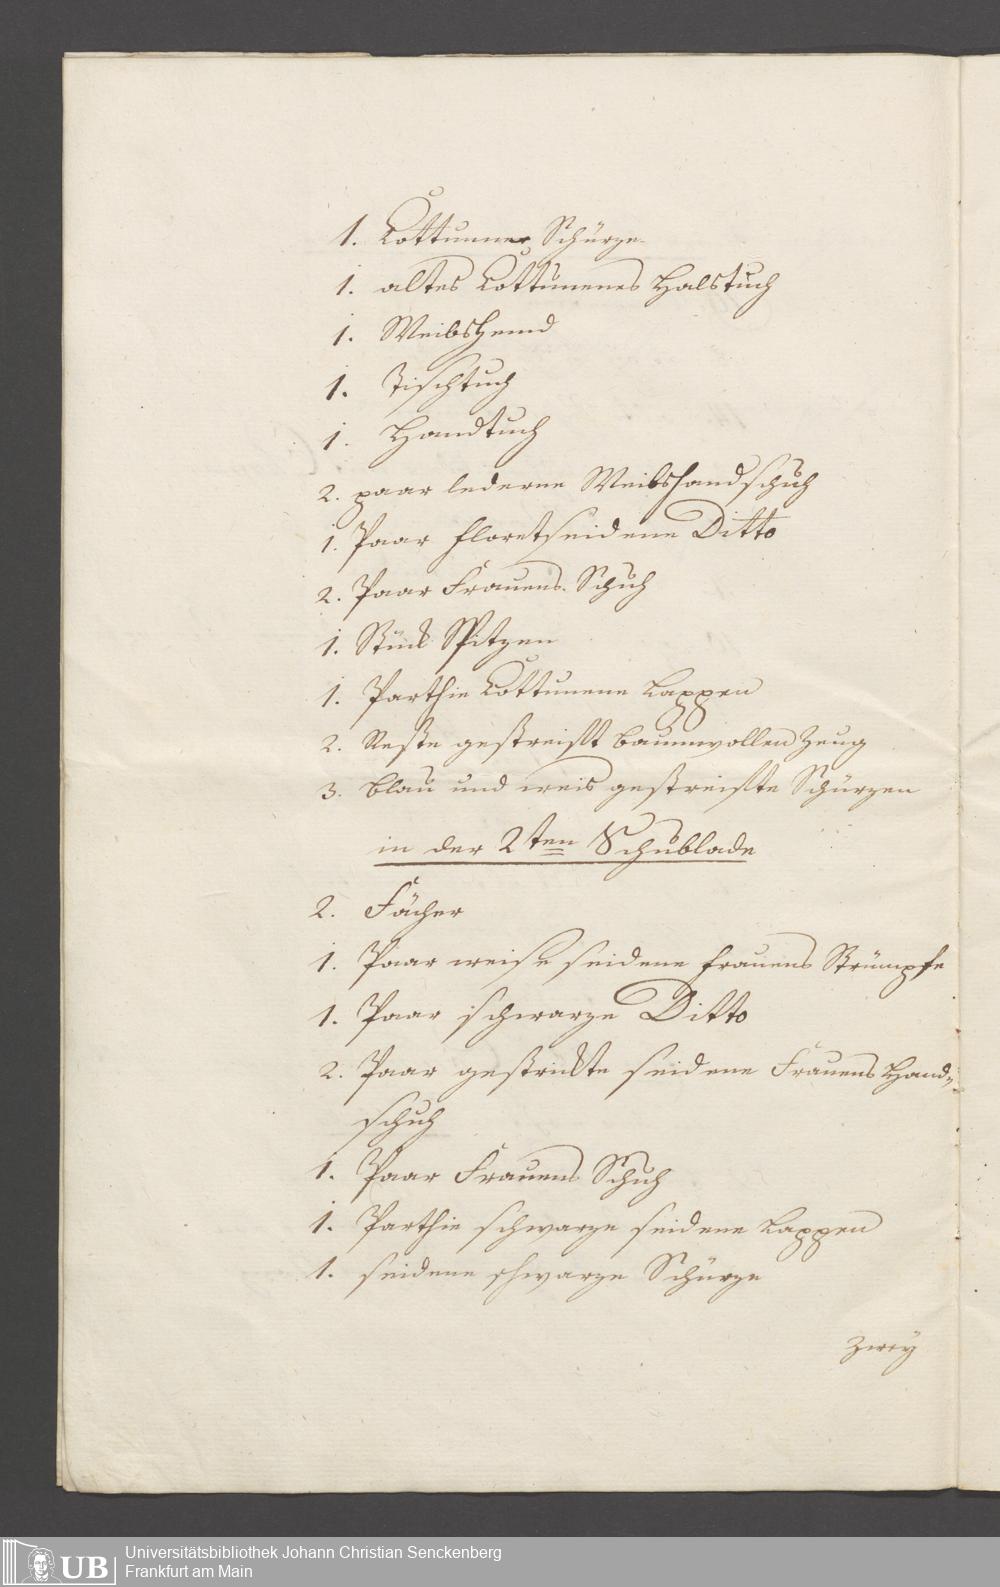 1. Cottunne Schürze
1. altes Cottunenes Halstuch
1. Weibshemd
1. Tischtuch
1. Handtuch
2. paar lederne Weibshandschuh
1. Paar floretseidene Ditto
2. Paar Frauens Schuh
1. Stück Spitzen
1. Parthie Cottunene Lappen
2. Reste gestreift baumwollen Zeug
3. blau und weis gestreifte Schürzen
in der 2ten Schublade
2. Fächer
1. Paar weise seidene Frauens Strümpfe
1. Paar schwarze Ditto
2. Paar gestrickte seidene Frauens Hand-
schuh
1. Paar Frauens Schuh
1. Parthie schwarze seidene Lappen
1. seidene schwarze Schürze
Zwey
UB
Universitätsbibliothek Johann Christian Senckenberg
Frankfurt am Main